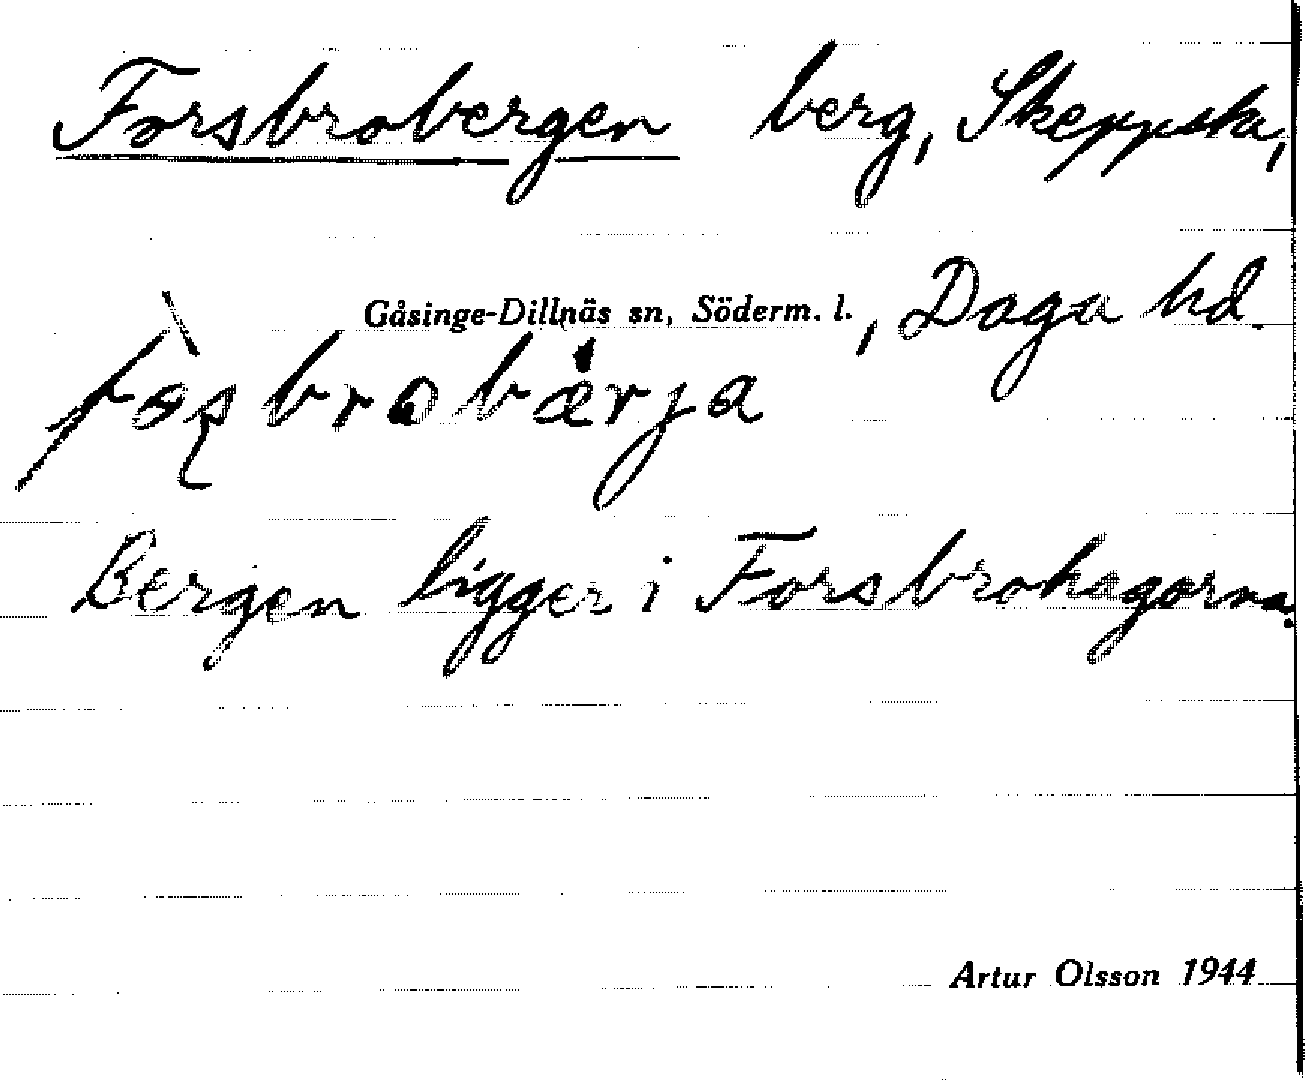 Forsbrobergen berg, Skeppsta,
Gåsinge-Dillnäs sn, Söderm. l., Daga hd.
Bergen ligger i Forsbrohagarna.
Artur Olsson 1944